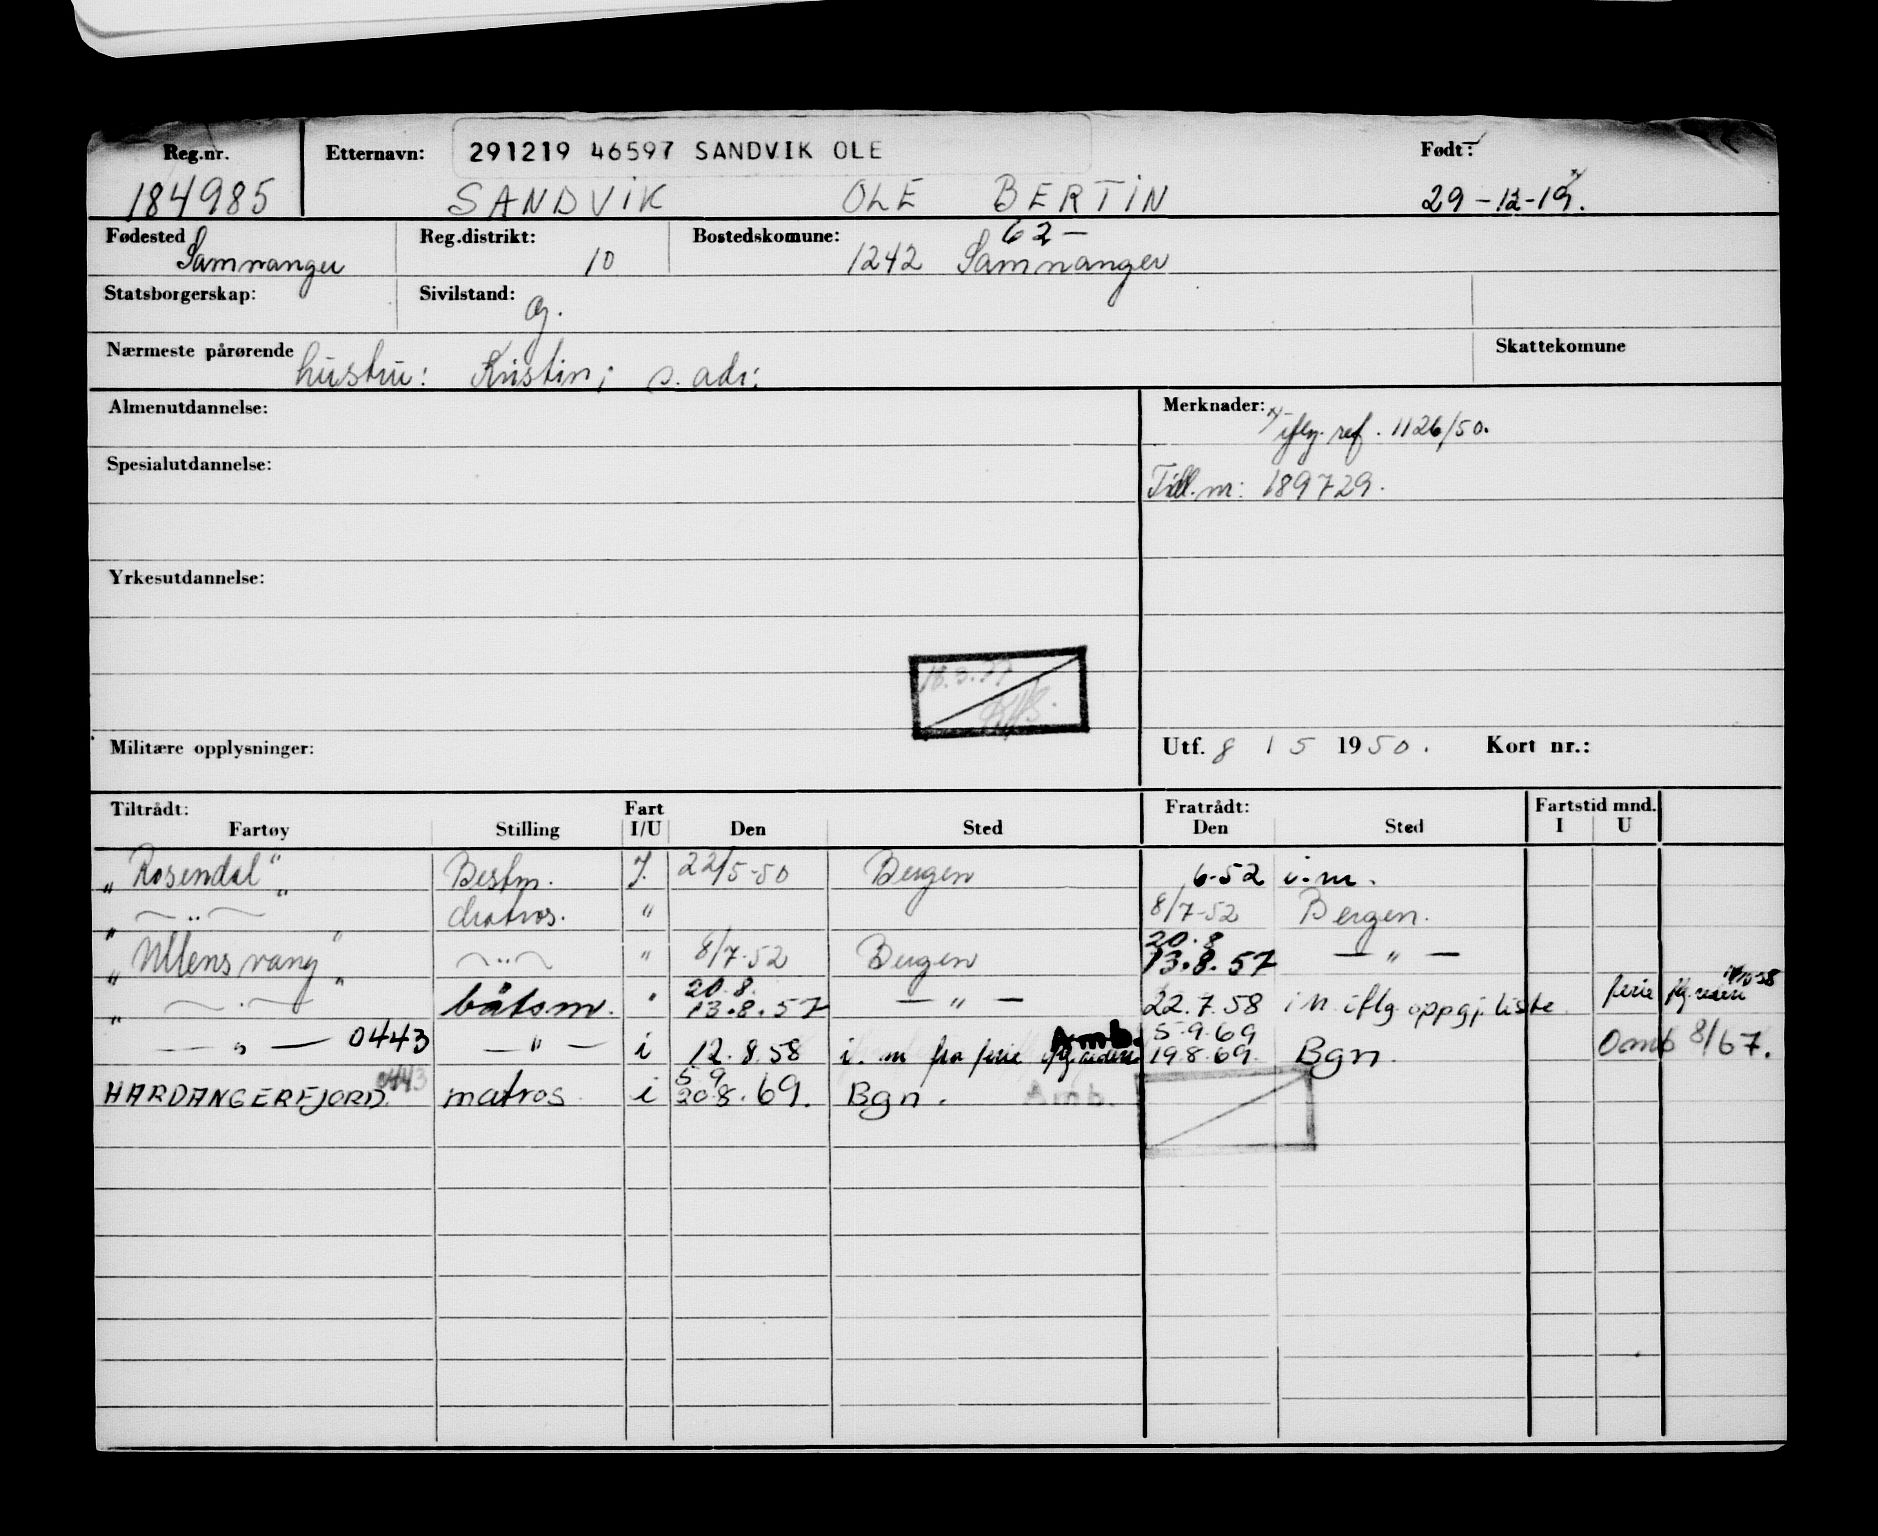 Reg.nr. Etternavn: 291219 46597 SANDVIK OLE Født:
184985 SANDVIK OLE BERTIN 29-12-19. x/
Fødested Samnanger Reg.distrikt: 10 Bostedskomune: 1242 62- Samnanger
Statsborgerskap: Sivilstand: g.
Nærmeste pårørende hustru: Kristin; s. adr: Skattekomune
Almenutdannelse: Merknader: x/ iflg. ref. 1126/50.
Spesialutdannelse: Till.nr: 189729.
Yrkesutdannelse:
18.3.77
Militære opplysninger: Utf. 8 / 5 1950. Kort nr.:
Tiltrådt: Fart Fratrådt: Fartstid mnd.
Fartøy Stilling I/U Den Sted Den Sted I U
"Rosendal" Bestm. I. 22/5-50 Bergen 6-52 i.m.
" — " — " Matros. " 8/7-52 Bergen.
"Ullensvang" — " — " 8/7-52 Bergen 20.8 13.8.57 — " —
" — " — " båtsm. " 20.8. 13.8.57 — " — 22.7.58 i N iflg. oppgj. liste ferie flg. rederi
" — " — 0443 — " — i 12.8.58 i. m fra ferie iflg. rederi Amb. 5.9.69 19.8.69. Bgn. Omb 8/67.
HARDANGERFJORD. 0443 matros i 5 9 20.8.69. Bgn. Amb.